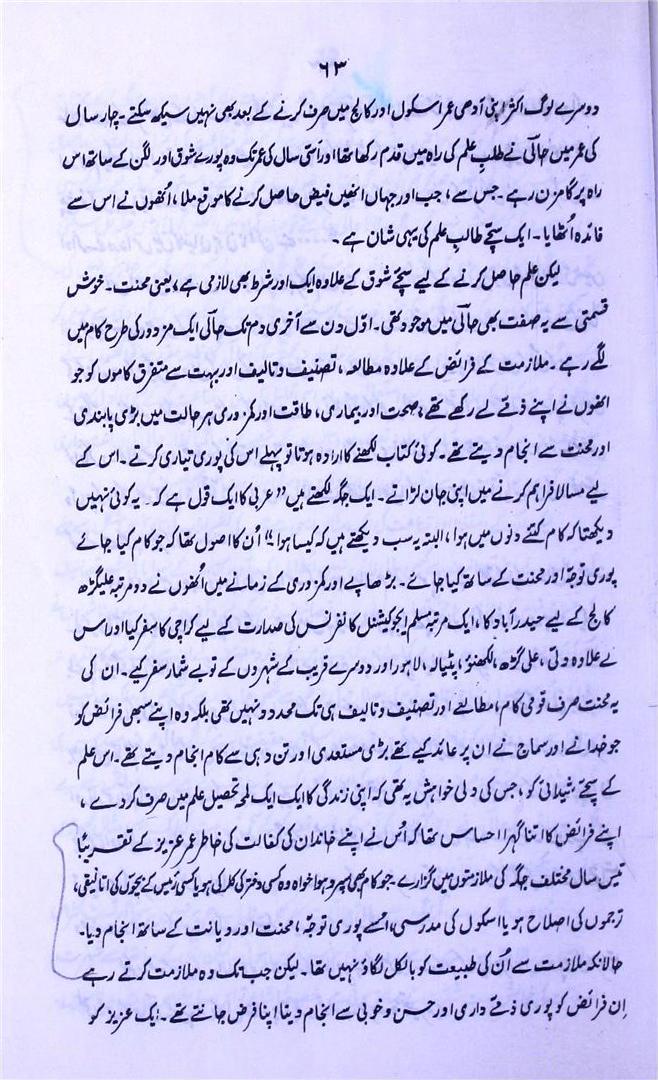 ۶۳
دوسرے لوگ اکثر اپنی آدھی عمر اسکول اور کالج میں صرف کرنے کے بعد بھی نہیں سیکھ سکتے۔ چار سال
کی عمر میں حالؔی نے طلبِ علم کی راہ میں قدم رکھا تھا اور اسّی سال کی عمر تک وہ پورے شوق اور لگن کے ساتھ اس
راہ پر گامزن رہے۔ جس سے، جب اور جہاں انھیں فیض حاصل کرنے کا موقع ملا، اُنھوں نے اس سے
فائدہ اُٹھایا۔ ایک سچّے طالبِ علم کی یہی شان ہے۔
لیکن علم حاصل کرنے کے لیے سچّے شوق کے علاوہ ایک اور شرط بھی لازمی ہے، یعنی محنت۔ خوش
قسمتی سے یہ صفت بھی حالؔی میں موجود تھی۔ اوّل دن سے آخری دم تک حالؔی ایک مزدور کی طرح کام میں
لگے رہے۔ ملازمت کے فرائض کے علاوہ مطالعہ، تصنیف و تالیف اور بہت سے متفرق کاموں کو جو
انھوں نے اپنے ذمّے لے رکھے تھے، صحت اور بیماری، طاقت اور کمزوری ہر حالت میں بڑی پابندی
اور محنت سے انجام دیتے تھے۔ کوئی کتاب لکھنے کا ارادہ ہوتا تو پہلے اس کی پوری تیاری کرتے۔ اس کے
لیے مسالا فراہم کرنے میں اپنی جان لڑاتے۔ ایک جگہ لکھتے ہیں ”عربی کا ایک قول ہے کہ۔ یہ کوئی نہیں
دیکھتا کہ کام کتنے دنوں میں ہوا، البتہ یہ سب دیکھتے ہیں کہ کیسا ہوا“۔ اُن کا اصول تھا کہ جو کام کیا جائے
پوری توجّہ اور محنت کے ساتھ کیا جائے۔ بڑھاپے اور کمزوری کے زمانے میں اُنھوں نے دو مرتبہ علیگڑھ
کالج کے لیے حیدرآباد کا، ایک مرتبہ مسلم ایجوکیشنل کانفرنس کی صدارت کے لیے کراچی کا سفر کیا اور اس
کے علاوہ دلّی، علی گڑھ، لکھنؤ، پٹیالہ، لاہور اور دوسرے قریب کے شہروں کے تو بے شمار سفر کیے۔ ان کی
یہ محنت صرف قومی کام، مطالعے اور تصنیف و تالیف ہی تک محدود نہیں تھی بلکہ وہ اپنے سبھی فرائض کو
جو خدا نے اور سماج نے ان پر عائد کیے تھے بڑی مستعدی اور تن دہی سے کام انجام دیتے تھے۔ اس علم
کے سچّے شیدائی کو، جس کی دلی خواہش یہ تھی کہ اپنی زندگی کا ایک ایک لمحہ تحصیلِ علم میں صرف کر دے،
اپنے فرائض کا اتنا گہرا احساس تھا کہ اُس نے اپنے خاندان کی کفالت کی خاطر عمرِ عزیز کے تقریباً
تیس سال مختلف جگہ کی ملازمتوں میں گزارے۔ جو کام بھی سپرد ہوا خواہ وہ کسی دفتر کی کلرکی ہو یا کسی رئیس کے بچّوں کی اتالیقی،
ترجموں کی اصلاح ہو یا اسکول کی مدرسی، اسے پوری توجّہ، محنت اور دیانت کے ساتھ انجام دیا۔
حالانکہ ملازمت سے اُن کی طبیعت کو بالکل لگاؤ نہیں تھا۔ لیکن جب تک وہ ملازمت کرتے رہے
اِن فرائض کو پوری ذمّے داری اور حسن و خوبی سے انجام دینا اپنا فرض جانتے تھے۔ ایک عزیز کو